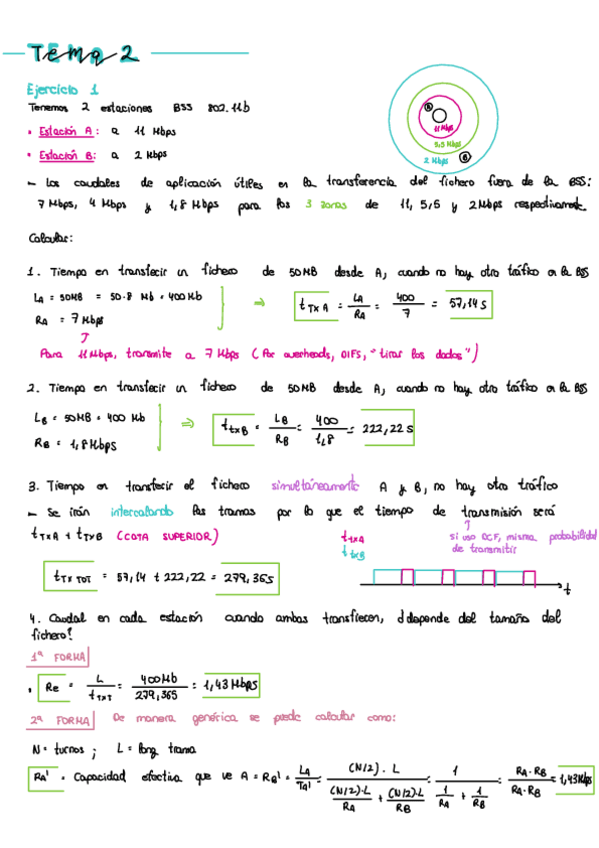 Tema 2
Ejercicio 1
Tenemos 2 estaciones BSS 802.11b
• Estación A: a 11 Mbps
• Estación B: a 2 Mbps
A
11 Mbps
5,5 Mbps
2 Mbps B
- Los caudales de aplicación útiles en la transferencia del fichero fuera de la BSS:
7 Mbps, 4 Mbps y 1,8 Mbps para las 3 zonas de 11, 5,5 y 2Mbps respectivamente.
Calcular:
1. Tiempo en transferir un fichero de 50MB desde A, cuando no hay otro tráfico en la BSS
LA = 50MB = 50·8 Mb = 400Mb
RA = 7 Mbps
⇒ tTXA = LA/RA = 400/7 = 57,14 s
↑
Para 11 Mbps, transmite a 7 Mbps (Por overheads, DIFS, "tirar los dados")
2. Tiempo en transferir un fichero de 50MB desde A, cuando no hay otro tráfico en la BSS
LB = 50MB = 400 Mb
RB = 1,8 Mbps
⇒ ttxB = LB/RB = 400/1,8 = 222,22 s
3. Tiempo en transferir el fichero simultáneamente A y B, no hay otro tráfico
- Se irán intercalando las tramas por lo que el tiempo de transmisión será
tTXA + tTXB (COTA SUPERIOR)
↑
si uso DCF, misma probabilidad
de transmitir
tTXA
tTXB
t
tTX TOT = 57,14 + 222,22 = 279,36s
4. Caudal en cada estación cuando ambas transfieren, ¿depende del tamaño del
fichero?
1ª FORMA
• Re = L/tTXT = 400Mb/279,365 = 1,43 Mbps
2ª FORMA De manera genérica se puede calcular como:
N = turnos; L = long trama
RA' = Capacidad efectiva que ve A = RB' = LA/TA' = (N/2)·L / ((N/2)·L/RA + (N/2)·L/RB) = 1 / (1/RA + 1/RB) = RA·RB/RA·RB = 1,43Mbps